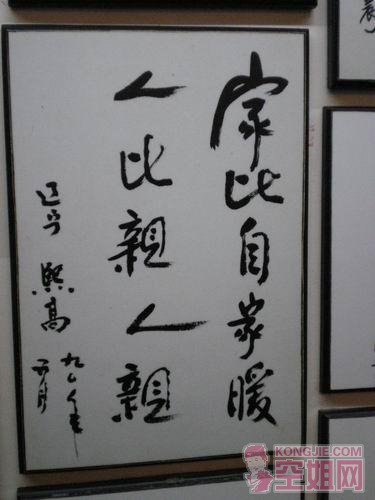 家比自家暖
人比親人親
熙高
五月
KONGJIE.COM
空姐网